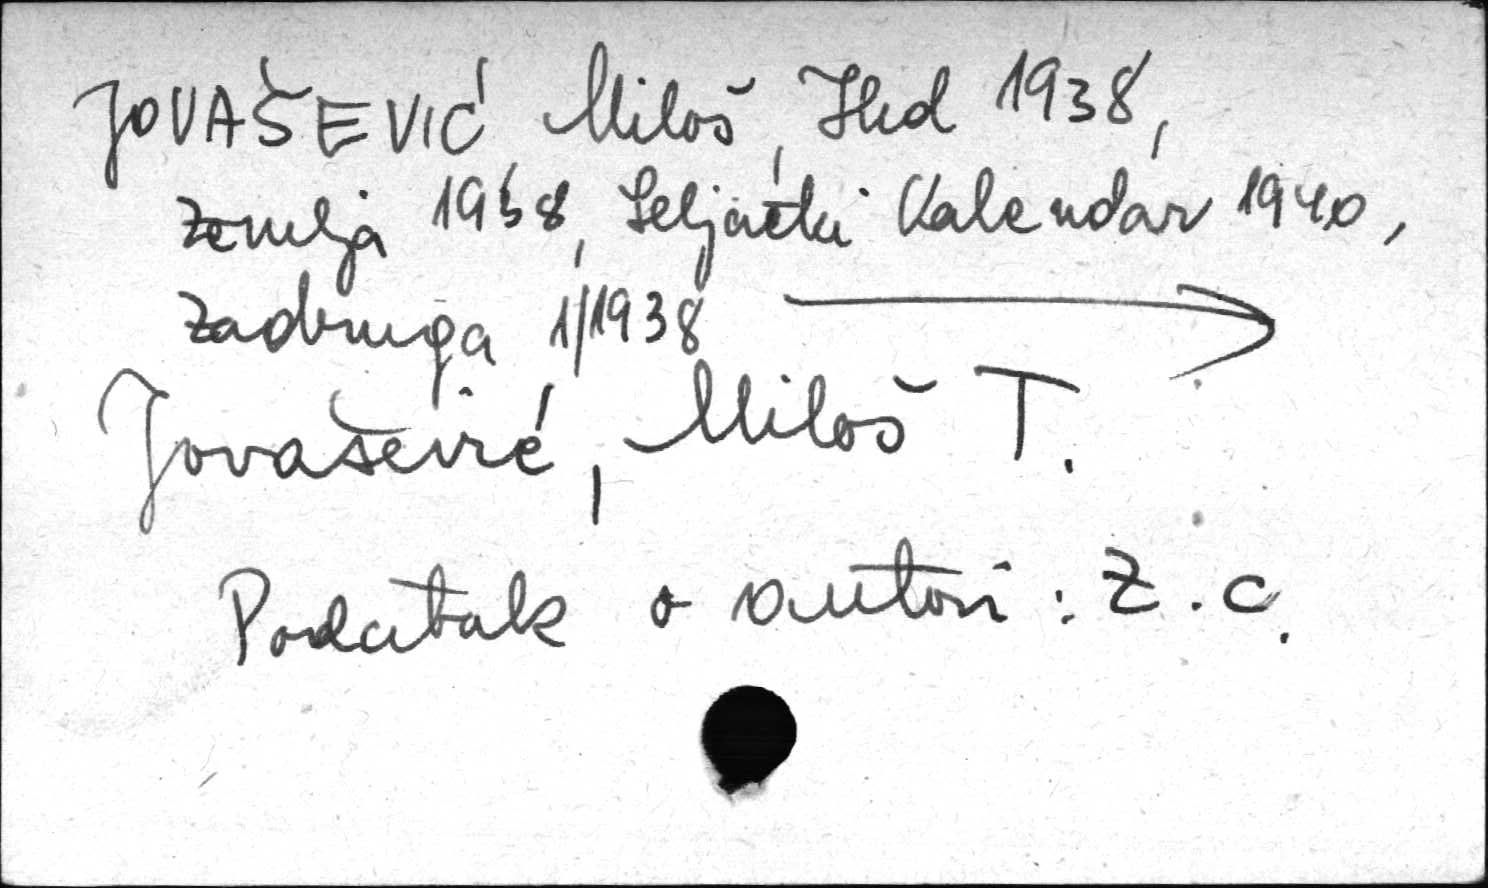 JOVAŠEVIĆ Miloš, Hrd 1938,
Zemlja 1938, Seljački Kalendar 1940,
Zadruga 1/1938
Jovašević, Miloš T.
Podatak o autori: Z. C.